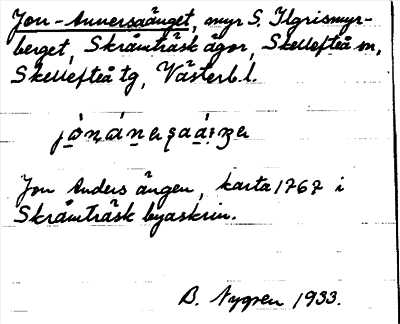 Jon-Anversaänget, myr S. Ilgrismyr-
berget, Skråmträsk ägor, Skellefteå sn,
Skellefteå tg, Västerb. l.
Jon Anders ängen, karta 1767 i
Skråmträsk byaskrin.
B. Nygren 1933.